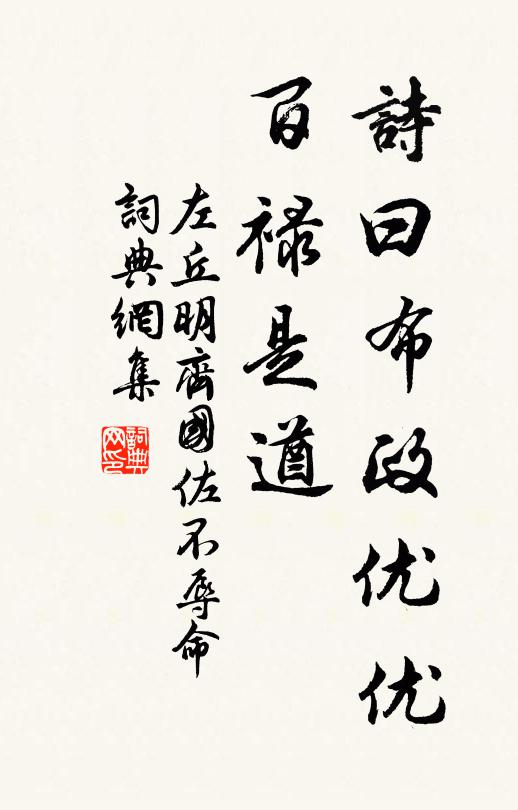 詩曰布政优优
百禄是遒
左丘明齊國佐不辱命
詞典網集
詞典网印